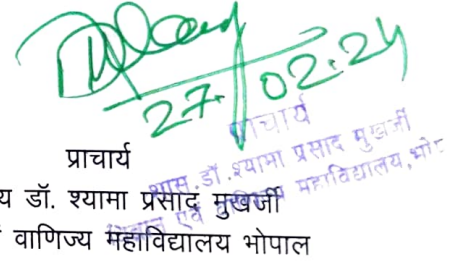 27.02.24
प्राचार्य
शास. डॉ. श्यामा प्रसाद मुखर्जी
महाविद्यालय, भो
प्राचार्य
य डॉ. श्यामा प्रसाद मुखर्जी
वाणिज्य महाविद्यालय भोपाल